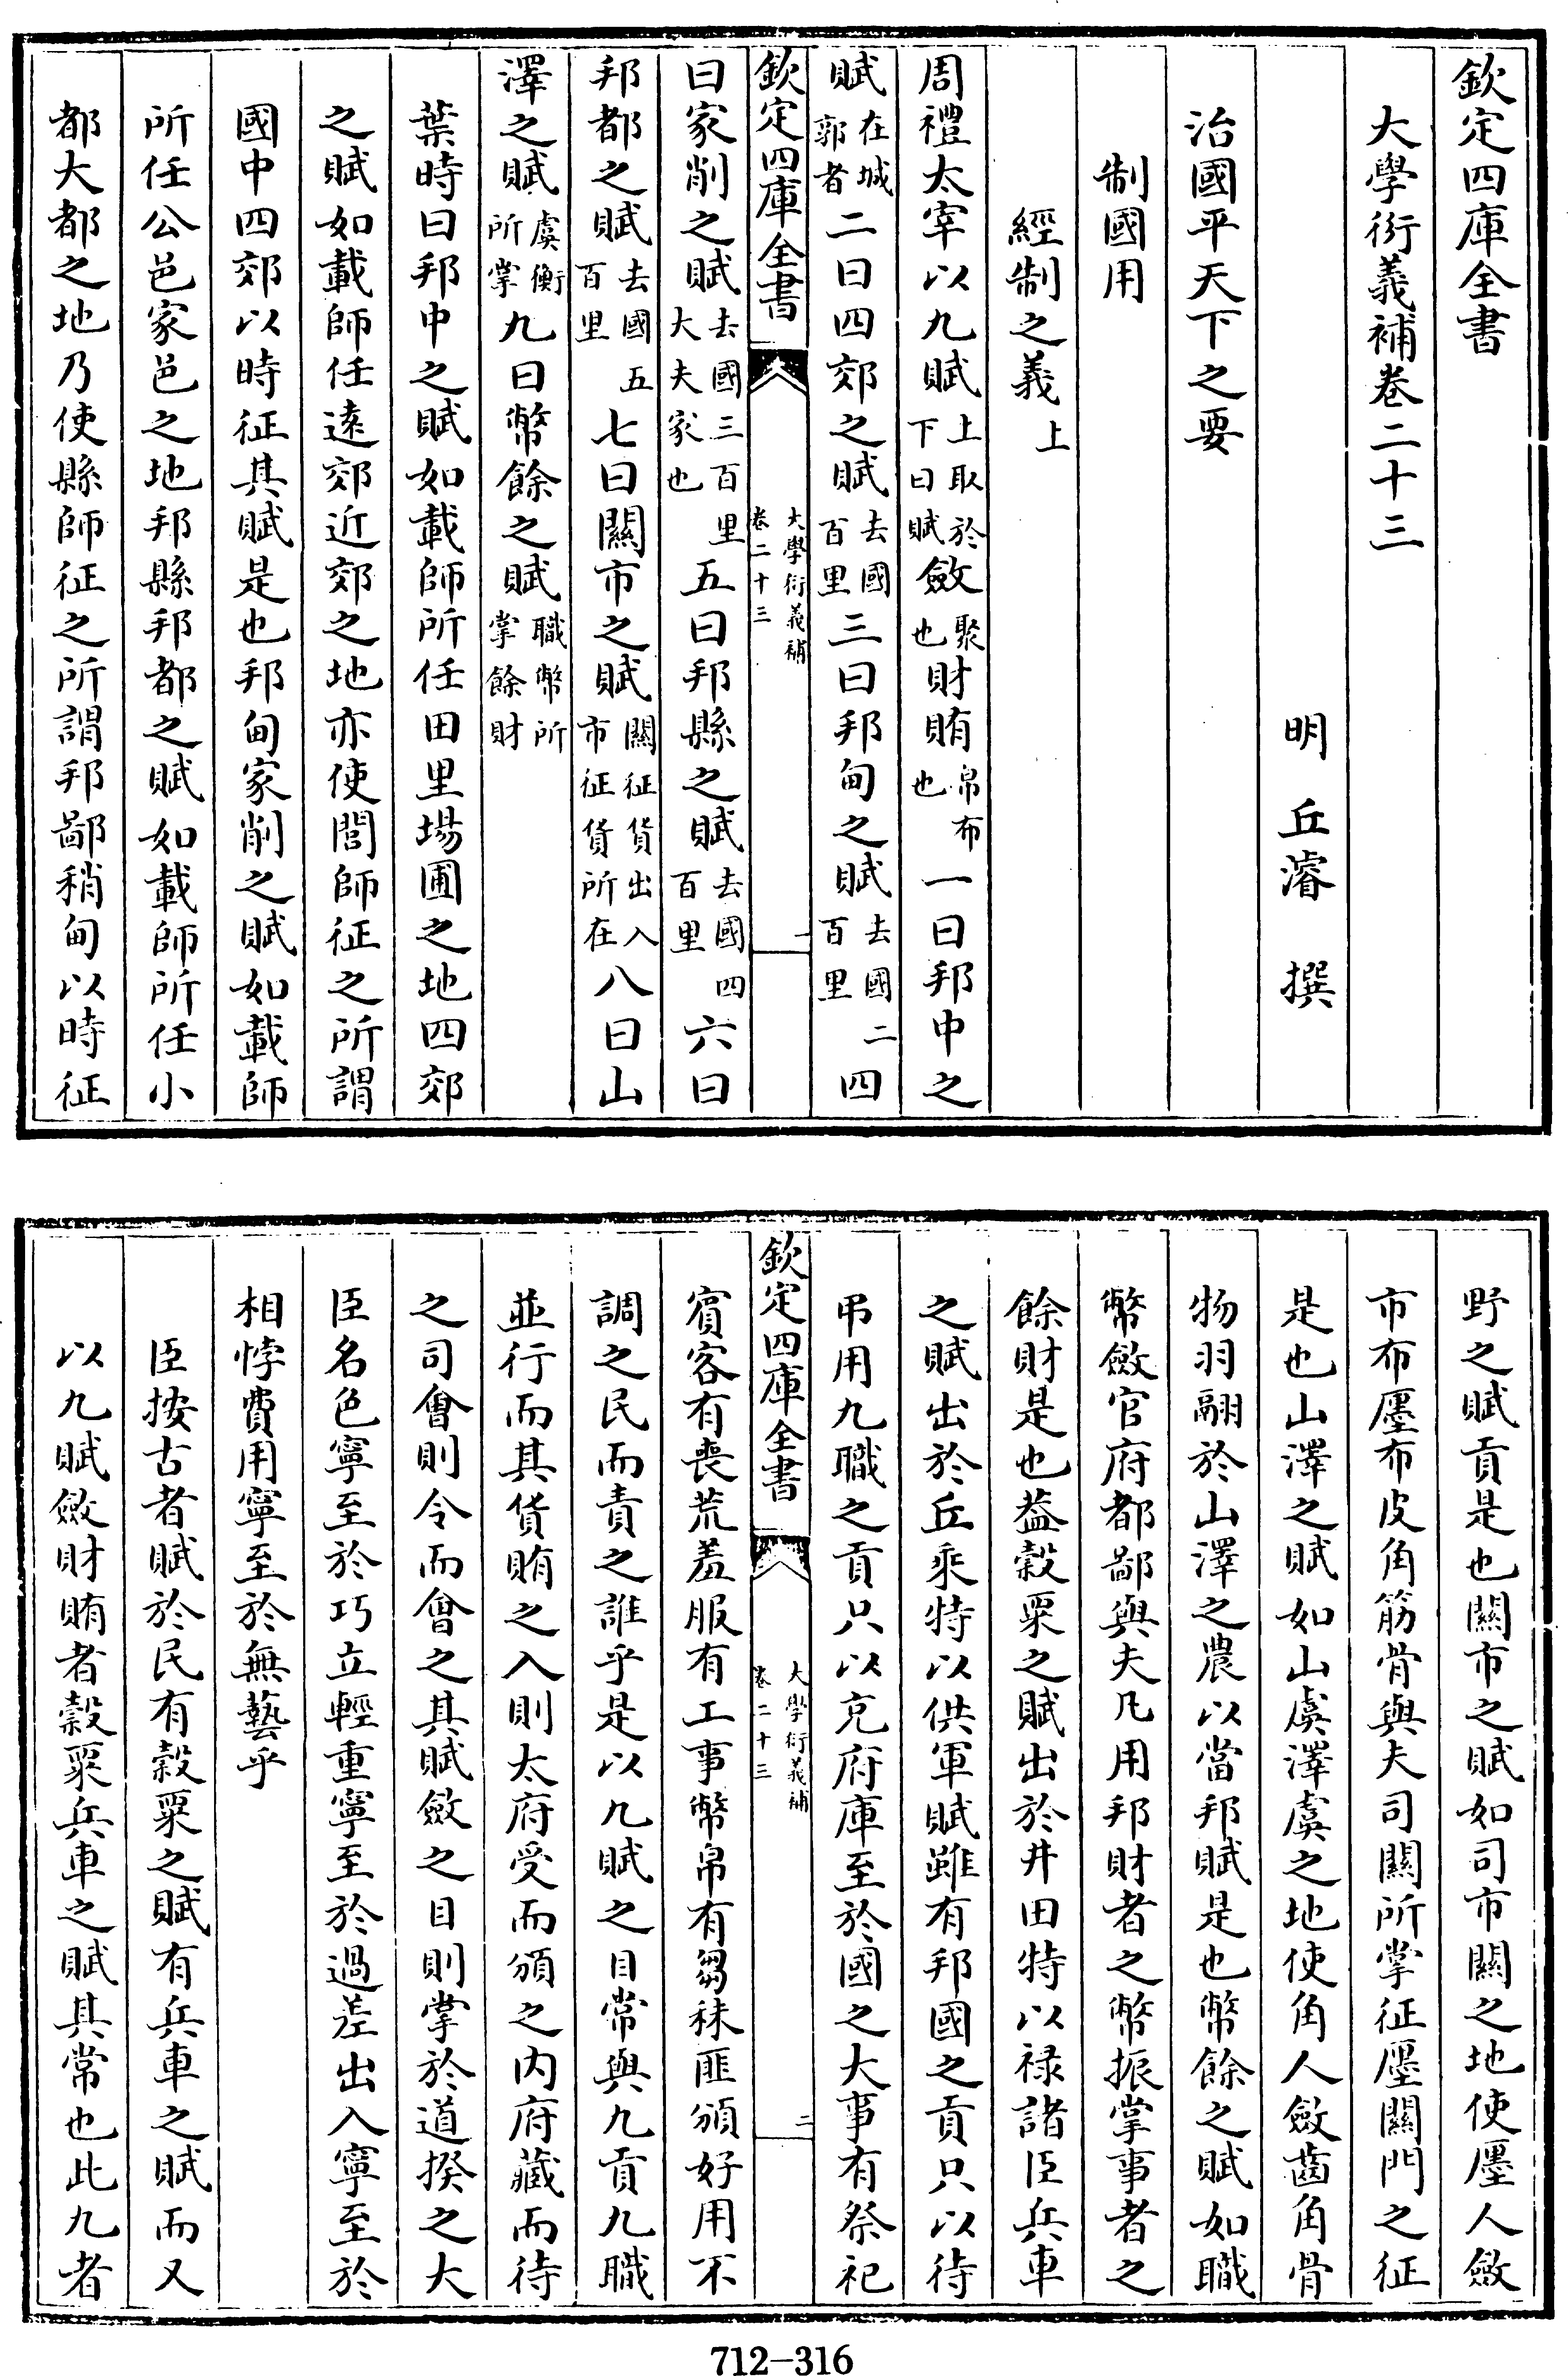 欽定四庫全書
大學衍義補卷二十三
明 丘濬 撰
治國平天下之要
制國用
經制之義上
周禮太宰以九賦上取於下曰賦斂聚也財賄帛布也一曰邦中之
賦在城郭者二曰四郊之賦去國百里三曰邦甸之賦去國二百里四
欽定四庫全書
大學衍義補
卷二十三
一
曰家削之賦去國三百里大夫家也五曰邦縣之賦去國四百里六曰
邦都之賦去國五百里七曰關市之賦關征貨出入市征貨所在八曰山
澤之賦虞衡所掌九曰幣餘之賦職幣所掌餘財
葉時曰邦中之賦如載師所任田里場圃之地四郊
之賦如載師任遠郊近郊之地亦使閭師征之所謂
國中四郊以時征其賦是也邦甸家削之賦如載師
所任公邑家邑之地邦縣邦都之賦如載師所任小
都大都之地乃使縣師征之所謂邦鄙稍甸以時征
野之賦貢是也關市之賦如司市關之地使廛人斂
市布廛布皮角筋骨與夫司關所掌征廛關門之征
是也山澤之賦如山虞澤虞之地使角人斂齒角骨
物羽翮於山澤之農以當邦賦是也幣餘之賦如職
幣斂官府都鄙與夫凡用邦財者之幣振掌事者之
餘財是也葢穀粟之賦出於井田特以祿諸臣兵車
之賦出於丘乘特以供軍賦雖有邦國之貢只以待
弔用九職之貢只以充府庫至於國之大事有祭祀
欽定四庫全書
大學衍義補
卷二十三
二
賓客有喪荒羞服有工事幣帛有芻秣匪頒好用不
調之民而責之誰乎是以九賦之目常與九貢九職
並行而其貨賄之入則太府受而頒之內府藏而待
之司會則令而會之其賦斂之目則掌於道揆之大
臣名色寧至於巧立輕重寧至於過差出入寧至於
相悖費用寧至於無藝乎
臣按古者賦於民有穀粟之賦有兵車之賦而又
以九賦斂財賄者穀粟兵車之賦其常也此九者
712-316